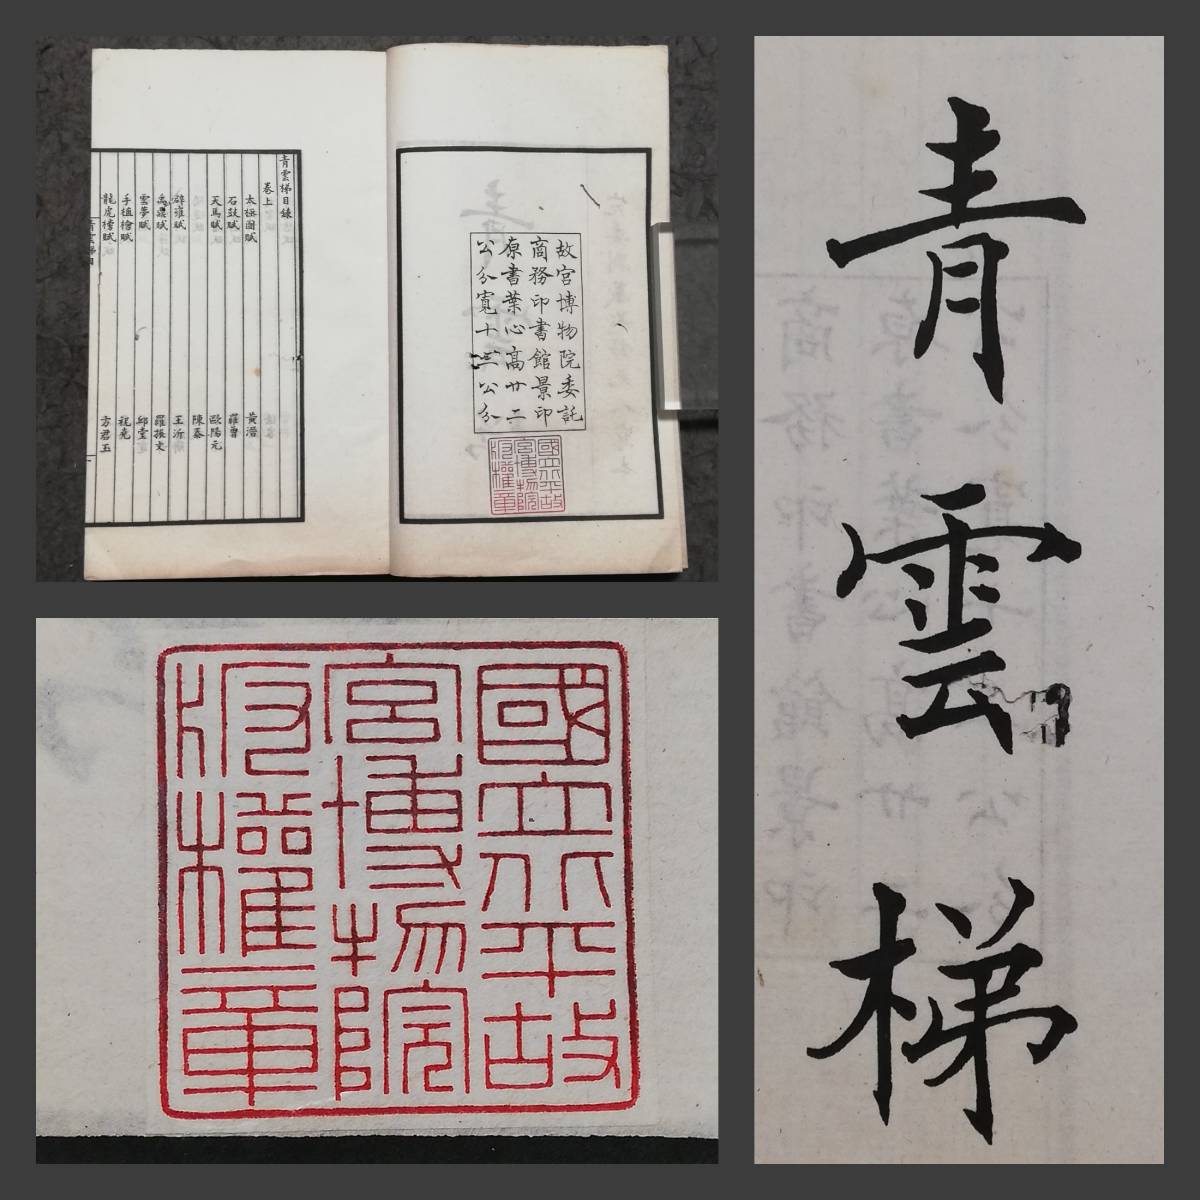 故宮博物院委託
商務印書館景印
原書葉心高廿二
公分寬十三公分
國立北平故
宮博物院
版權章
青雲梯目錄
卷上
太極圖賦 黃溍
石鼓賦 羅曾
天馬賦 歐陽元
陳泰
辟雍賦 王沂
賦 羅振文
雲夢賦 邱堂
手植檜賦 祖堯
龍虎榜賦 方君玉
國立北平故
宮博物院
版權章
青雲梯